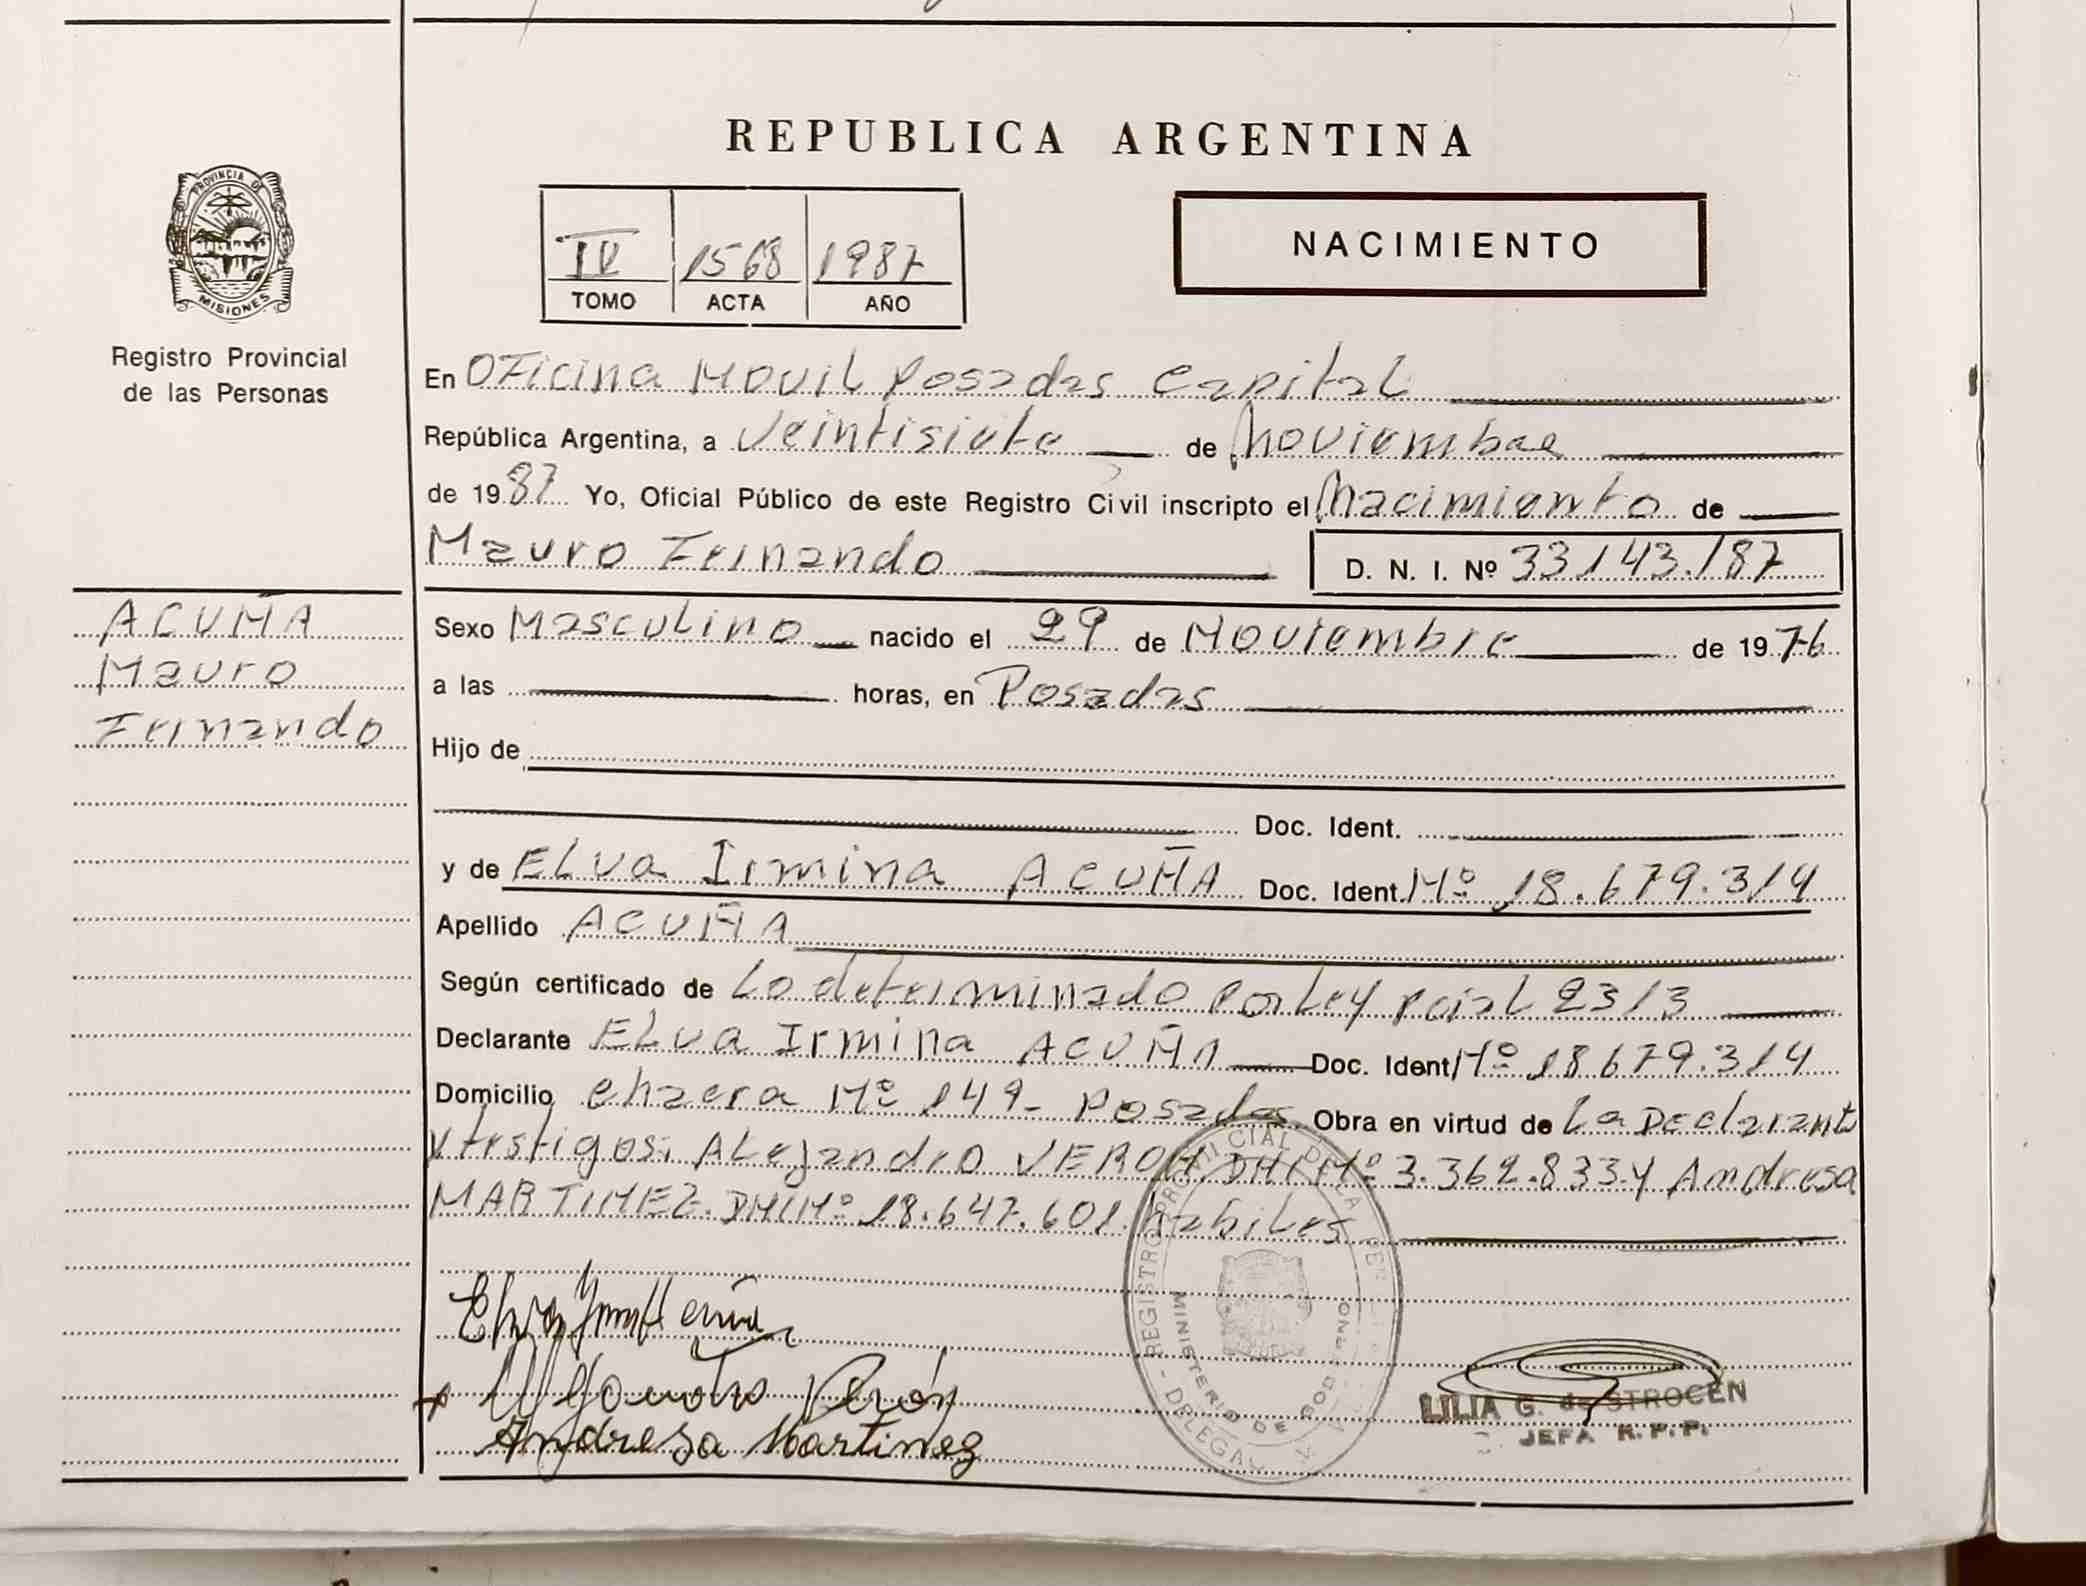 REPUBLICA ARGENTINA
PROVINCIA DE
MISIONES
Registro Provincial
de las Personas
IV 1568 1987
TOMO ACTA AÑO
NACIMIENTO
En Oficina Movil Posadas Capital
República Argentina, a Veintisiete de Noviembre
de 1987 Yo, Oficial Público de este Registro Civil inscripto el Nacimiento de
Mauro Fernando D. N. I. Nº 33143.187
ACUÑA
Mauro
Fernando
Sexo Masculino nacido el 29 de Noviembre de 1976
a las horas, en Posadas
Hijo de
Doc. Ident.
y de ELva Irmina ACUÑA Doc. Ident. Nº 18.679.314
Apellido ACUÑA
Según certificado de Lo determinado por Ley Pcial 2313
Declarante ELva Irmina ACUÑA Doc. Ident Nº 18679.314
Domicilio Chacra Nº 149- Posadas Obra en virtud de La Declarante
y testigos: ALejandro VERON DNI Nº 3.362.833 y Andresa
MARTINEZ. DNI Nº 18.647.601. habiles
Alejandro Verón
Andresa Martinez
REGISTRO PROVINCIAL DE LA PER
MINISTERIO DE GOBIERNO
DELEGA
LILIA G. de STROCEN
JEFA R.P.P.